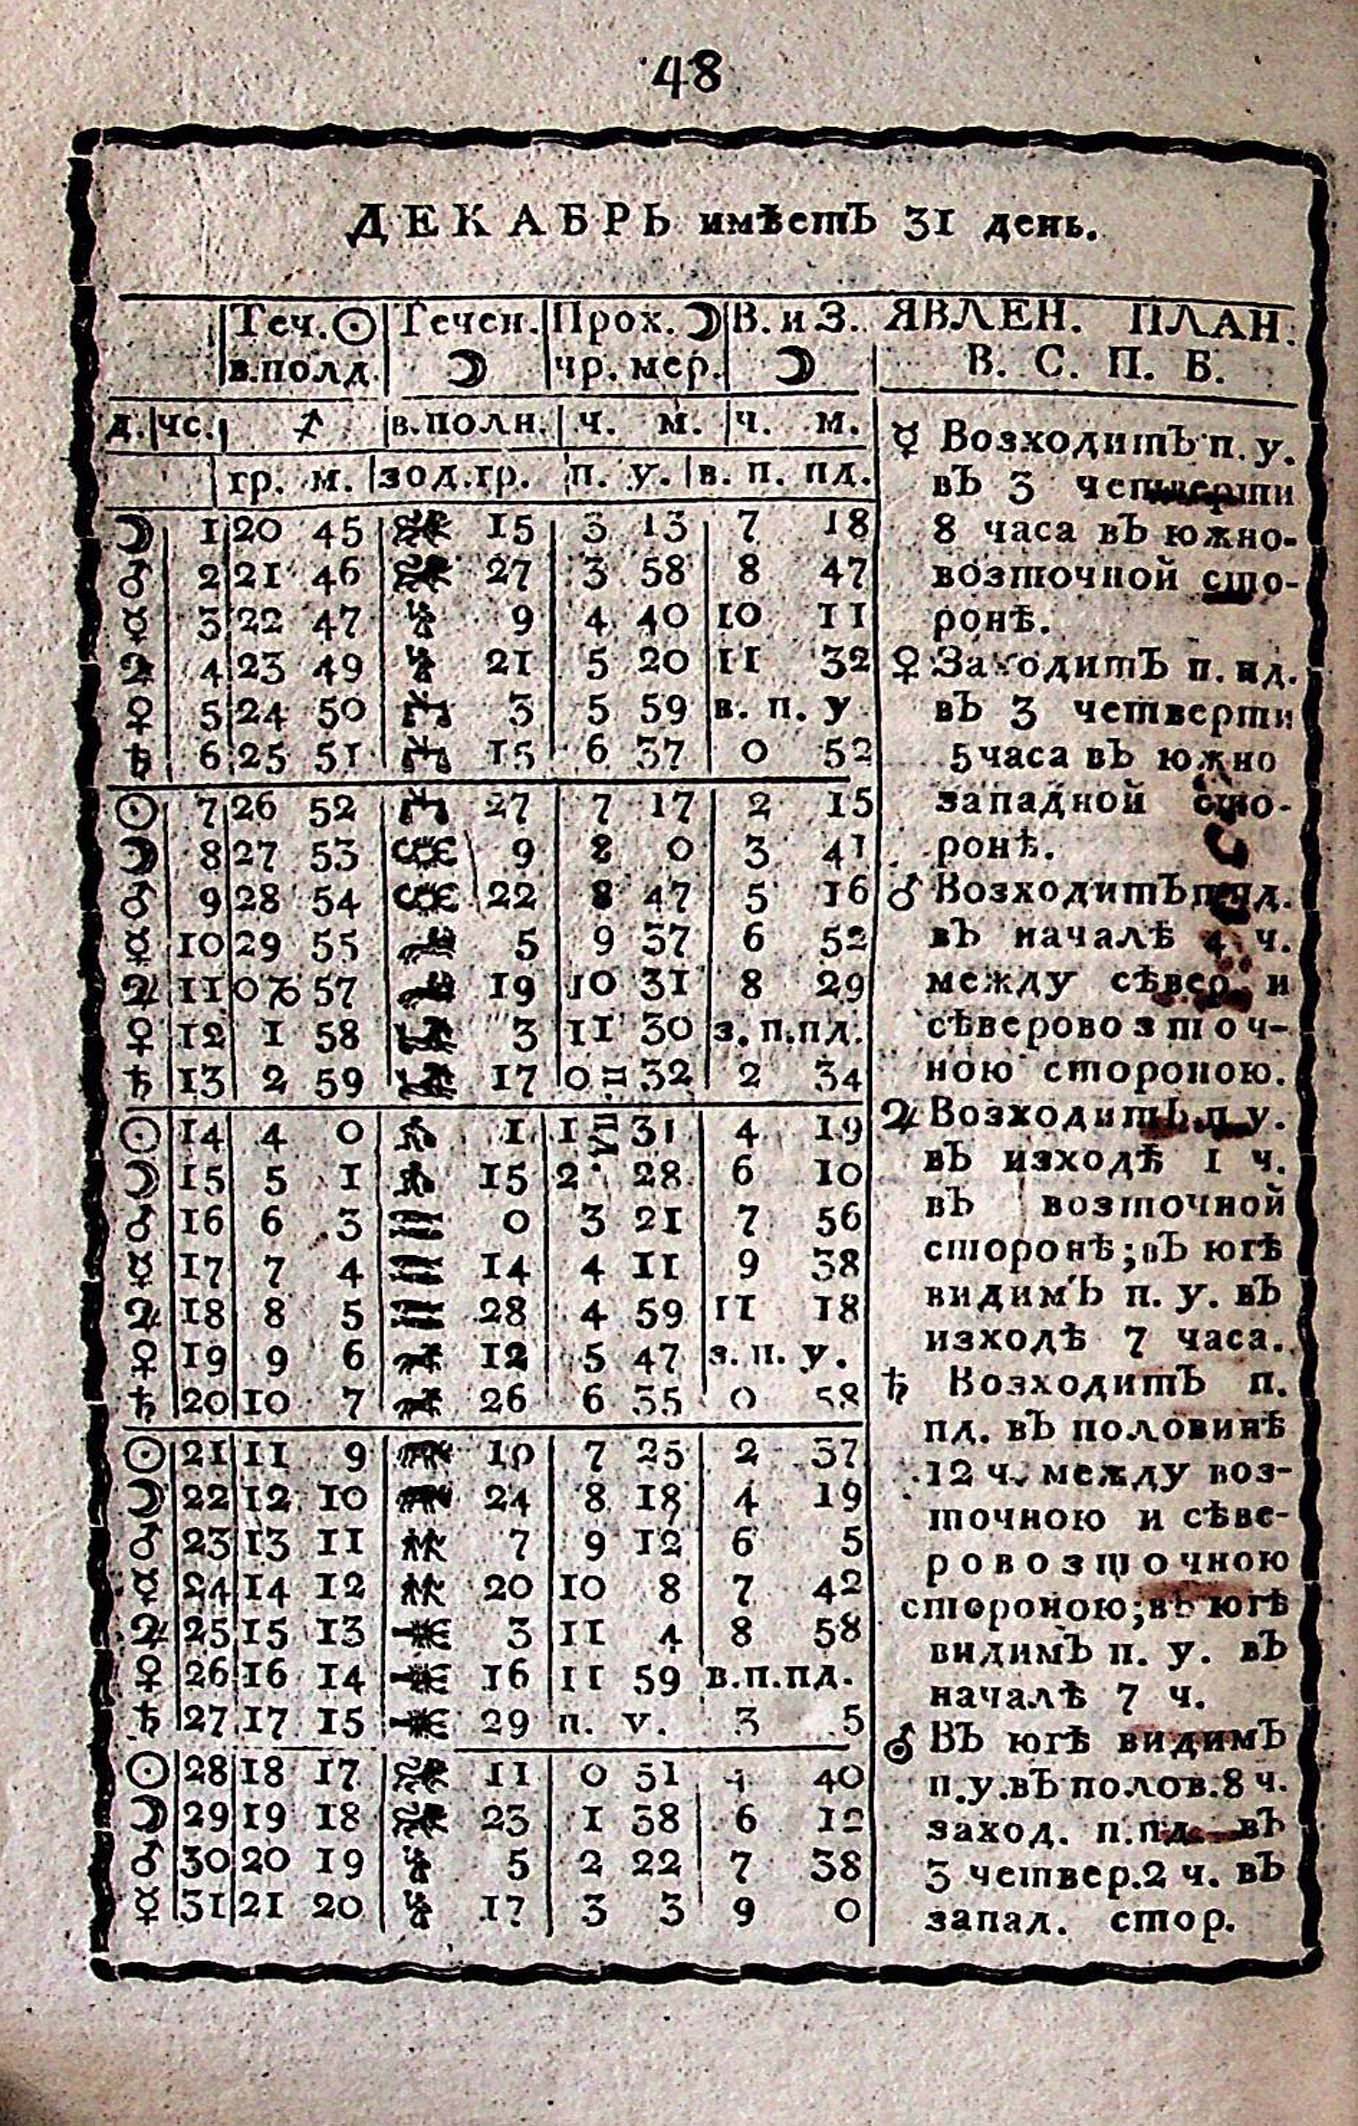 48
ДЕКАБРЬ имѣетЪ 31 день.
Теч. ☉ Течен. Прох. ☽ В. и З. ЯВЛЕН. ПЛАН.
в.полд. ☽ чр. мер. ☽ В. С. П. Б.
д. чс. ♐ в.полн. ч. м. ч. м.
гр. м. зод.гр. п. у. в. п. пд.
☽ 1 20 45 ♌ 15 3 13 7 18
♂ 2 21 46 ♌ 27 3 58 8 47
☿ 3 22 47 ♍ 9 4 40 10 11
♃ 4 23 49 ♍ 21 5 20 11 32
♀ 5 24 50 ♎ 3 5 59 в. п. у
♄ 6 25 51 ♎ 15 6 37 0 52
☉ 7 26 52 ♎ 27 7 17 2 15
☽ 8 27 53 ♏ 9 8 0 3 41
♂ 9 28 54 ♏ 22 8 47 5 16
☿ 10 29 55 ♐ 5 9 37 6 52
♃ 11 0 ♑ 57 ♐ 19 10 31 8 29
♀ 12 1 58 ♑ 3 11 30 з. п.пд.
♄ 13 2 59 ♑ 17 0 32 2 34
☉ 14 4 0 ♒ 1 1 31 4 19
☽ 15 5 1 ♒ 15 2 28 6 10
♂ 16 6 3 ♓ 0 3 21 7 56
☿ 17 7 4 ♓ 14 4 11 9 38
♃ 18 8 5 ♓ 28 4 59 11 18
♀ 19 9 6 ♈ 12 5 47 з. п. у.
♄ 20 10 7 ♈ 26 6 35 0 58
☉ 21 11 9 ♉ 10 7 25 2 37
☽ 22 12 10 ♉ 24 8 18 4 19
♂ 23 13 11 ♊ 7 9 12 6 5
☿ 24 14 12 ♊ 20 10 8 7 42
♃ 25 15 13 ♋ 3 11 4 8 58
♀ 26 16 14 ♋ 16 11 59 в.п.пд.
♄ 27 17 15 ♋ 29 п. у. 3 5
☉ 28 18 17 ♌ 11 0 51 4 40
☽ 29 19 18 ♌ 23 1 38 6 12
♂ 30 20 19 ♍ 5 2 22 7 38
☿ 31 21 20 ♍ 17 3 3 9 0
☿ ВозходитЪ п. у.
вЪ 3 четверти
8 часа вЪ южно-
возточной сто-
ронѣ.
♀ ЗаходитЪ п. пд.
вЪ 3 четверти
5 часа вЪ южно
западной сто-
ронѣ.
♂ ВозходитЪ п. пд.
вЪ началѣ 4 ч.
между сѣвер. и
сѣверовозточ-
ною стороною.
♃ ВозходитЪ п. у.
вЪ изходѣ 1 ч.
вЪ возточной
сторонѣ; вЪ югѣ
видимЪ п. у. вЪ
изходѣ 7 часа.
♄ ВозходитЪ п.
пд. вЪ половинѣ
12 ч. между воз-
точною и сѣве-
ровозточною
стороною; вЪ югѣ
видимЪ п. у. вЪ
началѣ 7 ч.
⛢ ВЪ югѣ видимЪ
п.у. вЪ полов. 8 ч.
заход. п.пд. вЪ
3 четвер. 2 ч. вЪ
запад. стор.